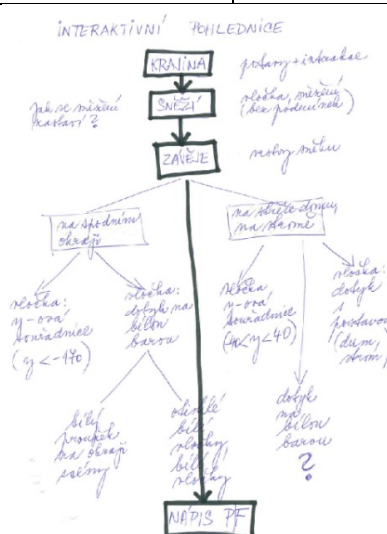 INTERAKTIVNÍ POHLEDNICE
KRAJINA
postavy + interakce
SNĚŽÍ
vločka, sněžení
(bez podmínek)
jak se sněžení
zastaví?
ZÁVĚJE
sněhu
na spodním
okraji
na střeše domu,
na stromě
vločka:
y-ová
souřadnice
(y < -170)
vločka:
dotyk na
bílou
barvu
vločka
y-ová
souřadnice
vločka:
dotyk
s
postavou
(dům,
strom,
bílý
proužek
na okraji
scény
bílé
vločky,
bílé
vločky
dotyk
na
bílou
barvu
?
NÁPIS PF